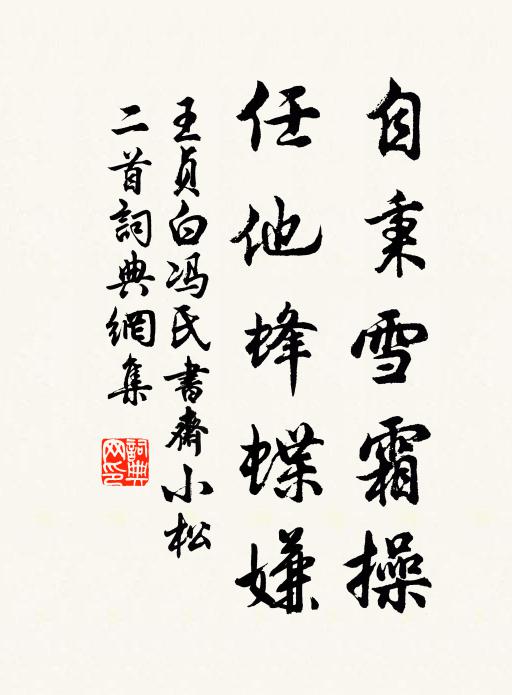 自秉雪霜操
任他蜂蝶嫌
王贞白冯氏書齋小松
二首詞典網集
詞典網印